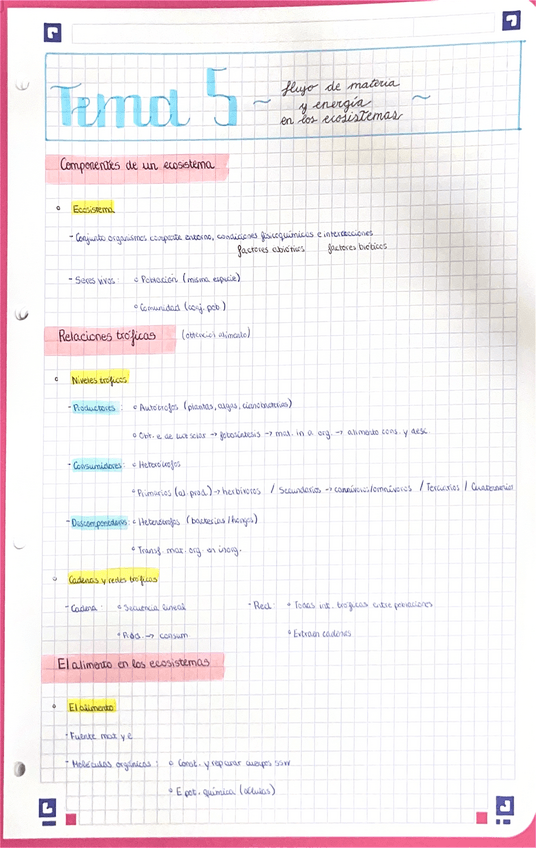 Tema 5 ~ flujo de materia ~
y energía
en los ecosistemas
Componentes de un ecosistema
Ecosistema
- Conjunto organismos comparte entorno, condiciones fisicoquímicas e interacciones
factores abióticos factores bióticos
- Seres vivos: Población (misma especie)
Comunidad (conj. pob)
Relaciones tróficas (obtención alimento)
Niveles tróficos
- Productores: Autótrofos (plantas, algas, cianobacterias)
Obt. e de luz solar → fotosíntesis → mat. in a org. → alimento cons. y desc.
- Consumidores: Heterótrofos
Primarios (al. prod.) → herbívoros / Secundarios → carnívoros/omnívoros / Terciarios / Cuaternarios
- Descomponedores: Heterótrofos (bacterias/hongos)
Transf. mat. org. en inorg.
Cadenas y redes tróficas
- Cadena: Secuencia lineal - Red: Todas int. tróficas entre poblaciones
Prod. → consum Extraen cadenas
El alimento en los ecosistemas
El alimento
- Fuente mat y e
- Moléculas orgánicas: Const. y reparar cuerpos
E pot. química (células)